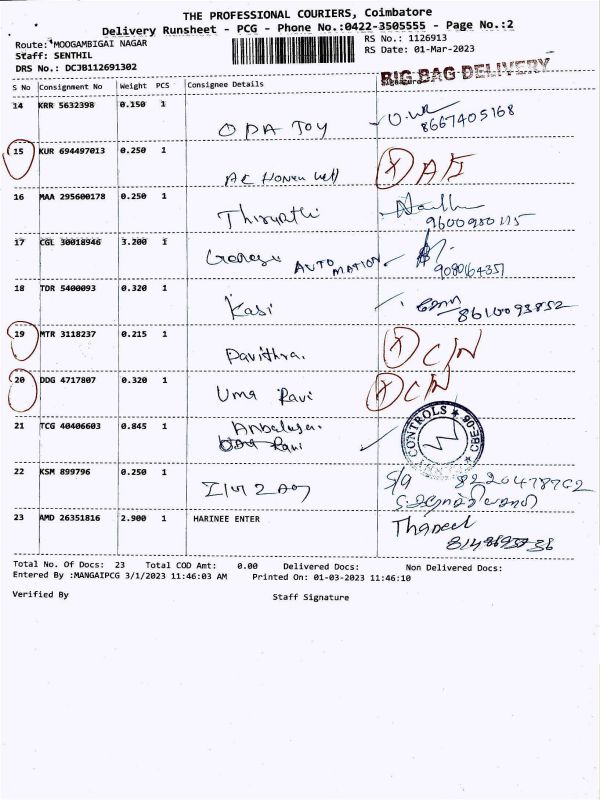 THE PROFESSIONAL COURIERS, Coimbatore
Delivery Runsheet - PCG - Phone No.:0422-3505555 - Page No.:2
Route: MOOGAMBIGAI NAGAR
RS No.: 1126913
Staff: SENTHIL
RS Date: 01-Mar-2023
DRS No.: DCJB112691302
BIG BAG DELIVERY
S No Consignment No Weight PCS Consignee Details Signature
14 KRR 5632398 0.150 1
ODA JOY
8667405168
15 KUR 694497013 0.250 1
X
16 MAA 295600178 0.250 1
Thirupathi
17 CGL 30018946 3.200 1
AUTOMATION
18 TDR 5400093 0.320 1
Kasi
19 MTR 3118237 0.215 1
Pavithra.
X C/N
20 DDG 4717807 0.320 1
Uma Ravi
X C/N
21 TCG 40406603 0.845 1
Ravi
CONTROLS ★ CBE-06 ★
22 KSM 899796 0.250 1
23 AMD 26351816 2.900 1 HARINEE ENTER
Total No. Of Docs: 23 Total COD Amt: 0.00 Delivered Docs: Non Delivered Docs:
Entered By :MANGAIPCG 3/1/2023 11:46:03 AM Printed On: 01-03-2023 11:46:10
Verified By
Staff Signature